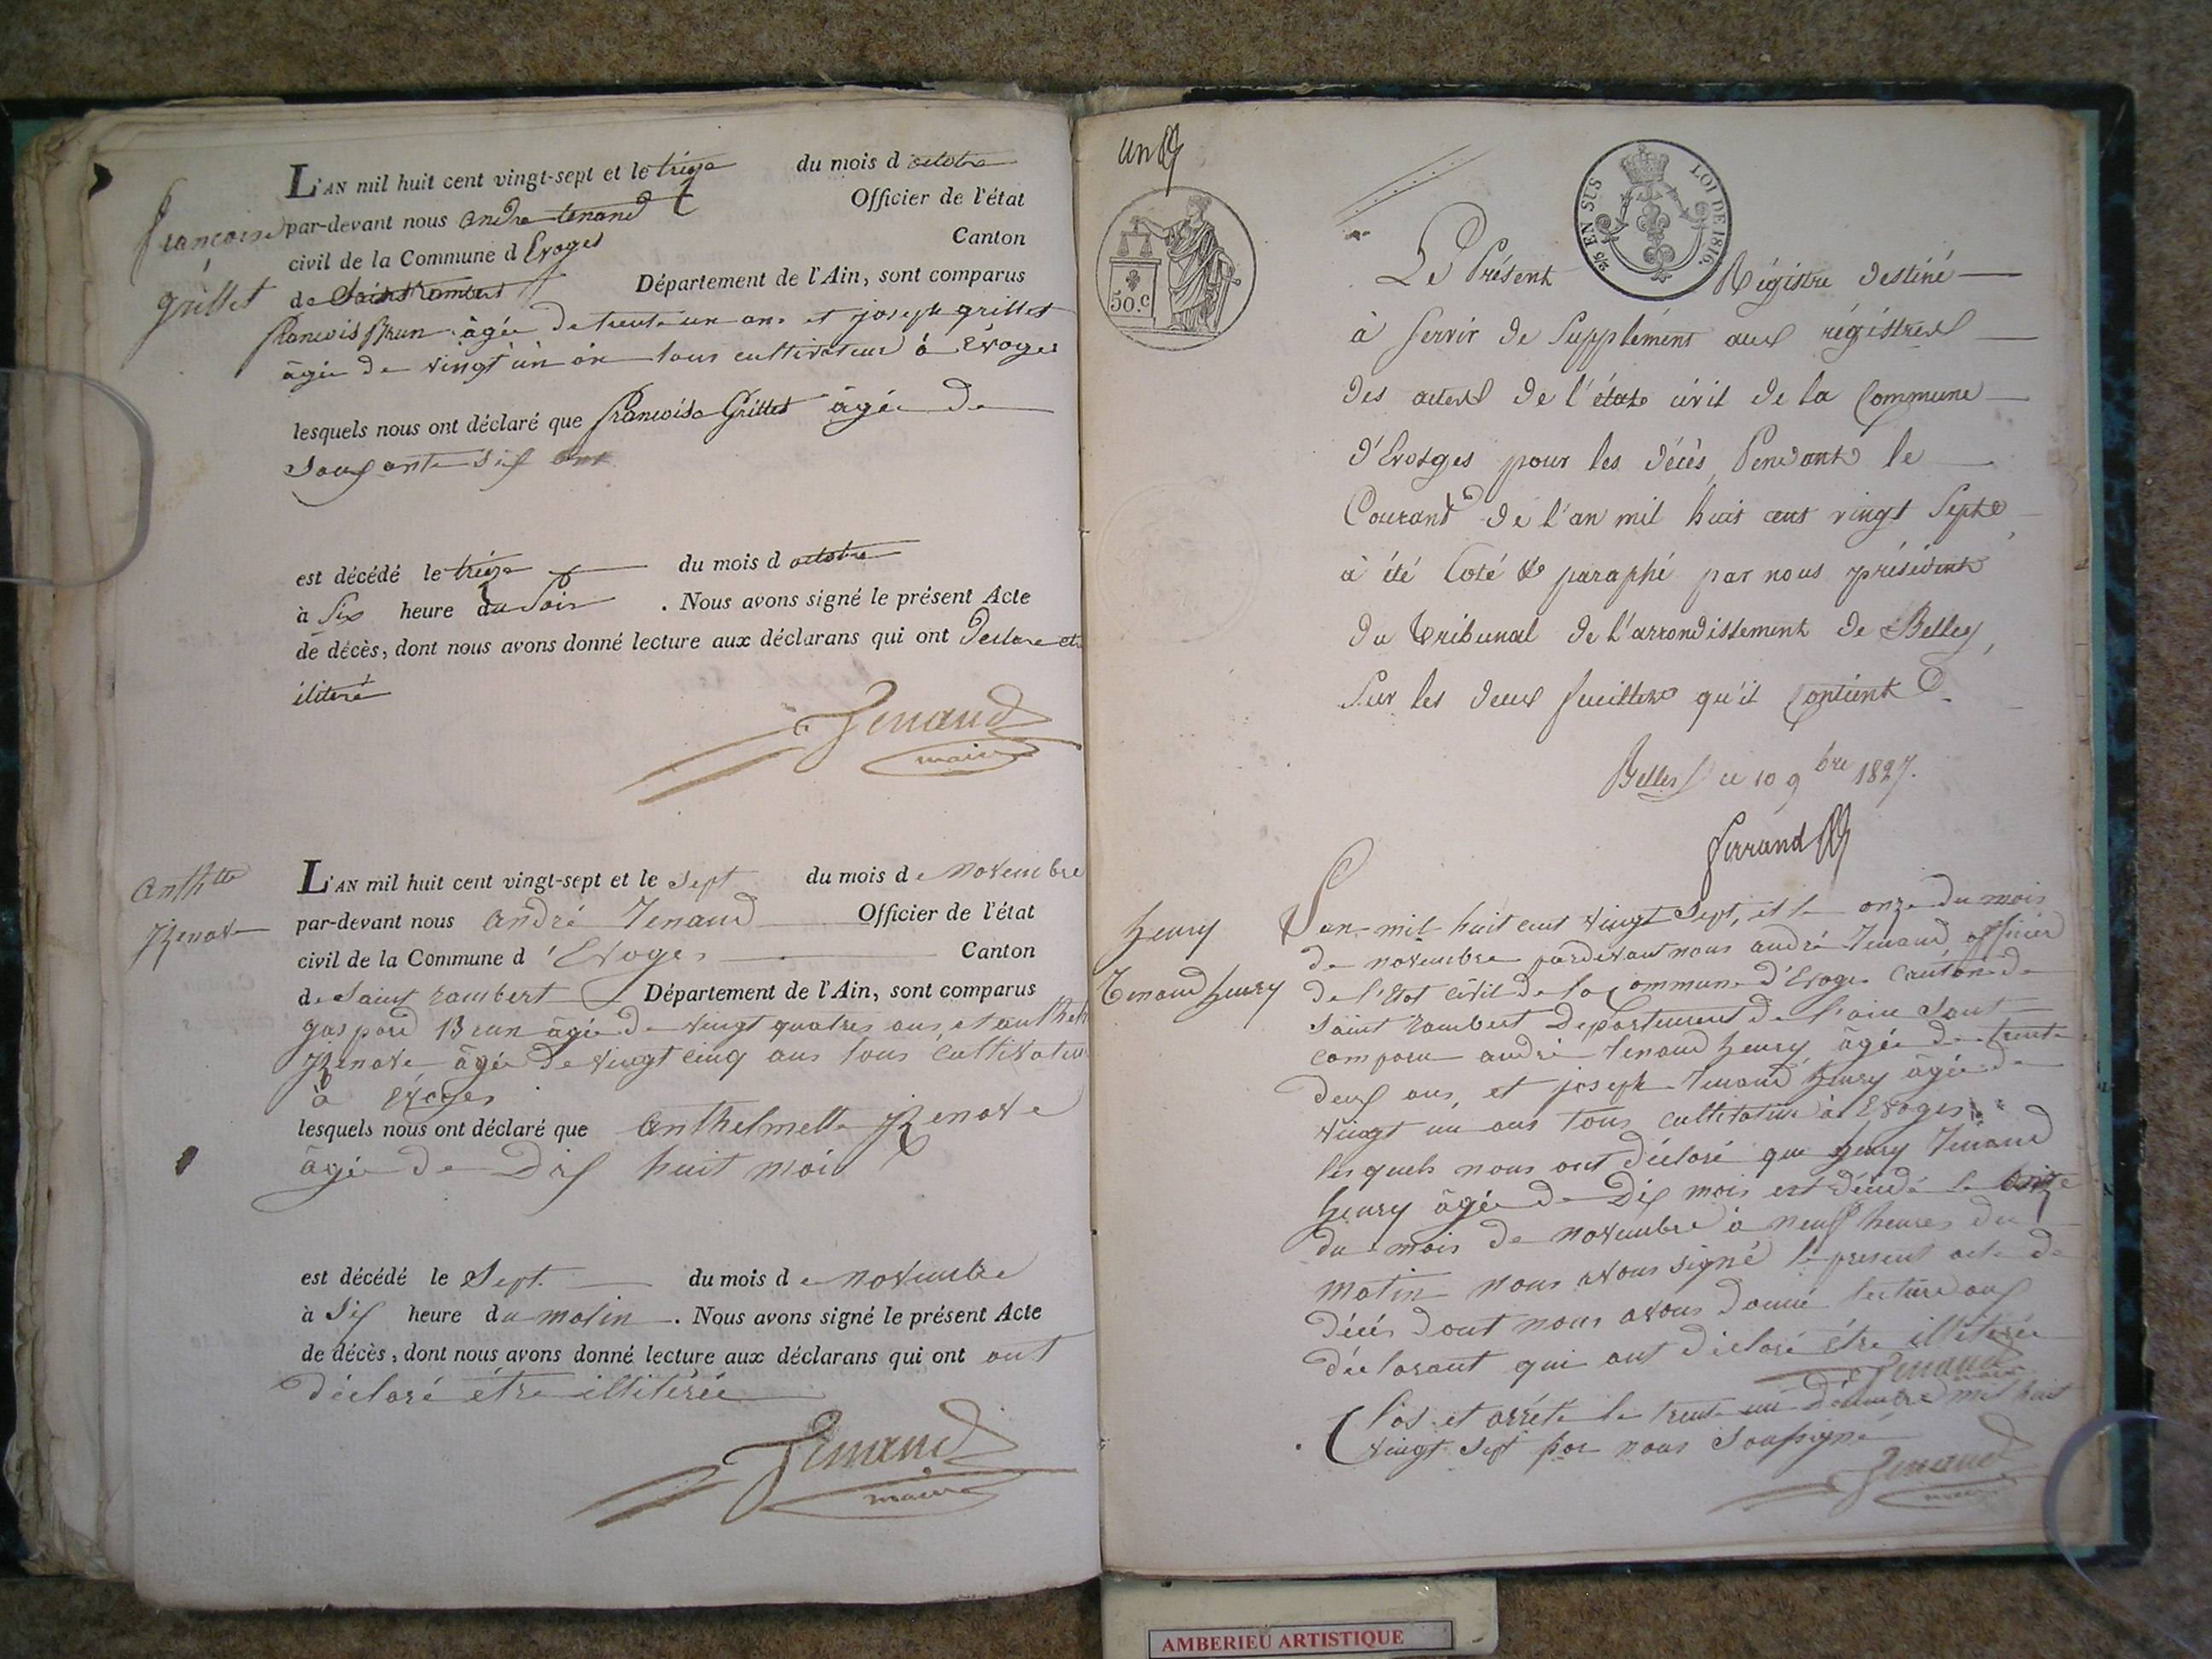 françoise
grillet
L'AN mil huit cent vingt-sept et le treize du mois d octobre
par-devant nous andre tenand Officier de l'état
civil de la Commune d Evoges Canton
de Saint Rambert Département de l'Ain, sont comparus
francois Brun âgée de trente un ans et joseph grillet
âgée de vingt un an tous cultivateur à Evoges
lesquels nous ont déclaré que francoise Grillet âgée de
soixante dix ans
est décédé le treize du mois d octobre
à Six heure du Soir . Nous avons signé le présent Acte
de décès, dont nous avons donné lecture aux déclarans qui ont Declare etr
iliteré
Tenand
maire
Anthtte
Jzenave
L'AN mil huit cent vingt-sept et le Sept du mois d e Novembre
par-devant nous André Tenand Officier de l'état
civil de la Commune d 'Evoges Canton
de Saint rambert Département de l'Ain, sont comparus
gaspard Brun âgée de vingt quatres ans, et anthel
âgée de vingt cinq ans tous cultivateur
à Evoges
lesquels nous ont déclaré que Anthelmette
âgée de Dix huit mois
est décédé le Sept du mois d e novembre
à Six heure du matin . Nous avons signé le présent Acte
de décès, dont nous avons donné lecture aux déclarans qui ont ont
déclaré étre illitérée
Tenand
maire
un
50.C
2/5 EN SUS LOI DE 1816.
Le Présent Régistre destiné
à servir de Supplément aux régistres
des actes de l'état civil de la Commune
d'Evosges pour les décès, Pendant le
Courant de l'an mil huit cent vingt Sept
à été Coté & paraphé par nous président
du tribunal de l'arrondissement de Belley,
sur les deux feuillets qu'il Contient
Belley ce 10 9bre 1827.
ferrand
henry
Tenand henry
L'an mil huit cent vingt Sept, et le onze du mois
de novembre pardevant nous andré Tenand officier
de l'Etat civil de la commune d'Evoges canton de
Saint rambert Departement de l'ain sont
comparu andré tenand henry âgée de trente
deux ans, et joseph tenand henry âgée de
vingt un ans tous cultivateur à Evoges
lesquels nous ont déclaré que henry Tenand
henry âgée de Dix mois est décédé le onze
du mois de novembre à neuf heures du
matin nous avons signé le present acte de
décés dont nous avons donné lecture aux
déclarant qui ont déclaré étre illitérée
Tenand
maire
Clos et arrété le trente un Décembre mil huit
vingt sept par nous Soussigné
Tenand
maire
AMBERIEU ARTISTIQUE